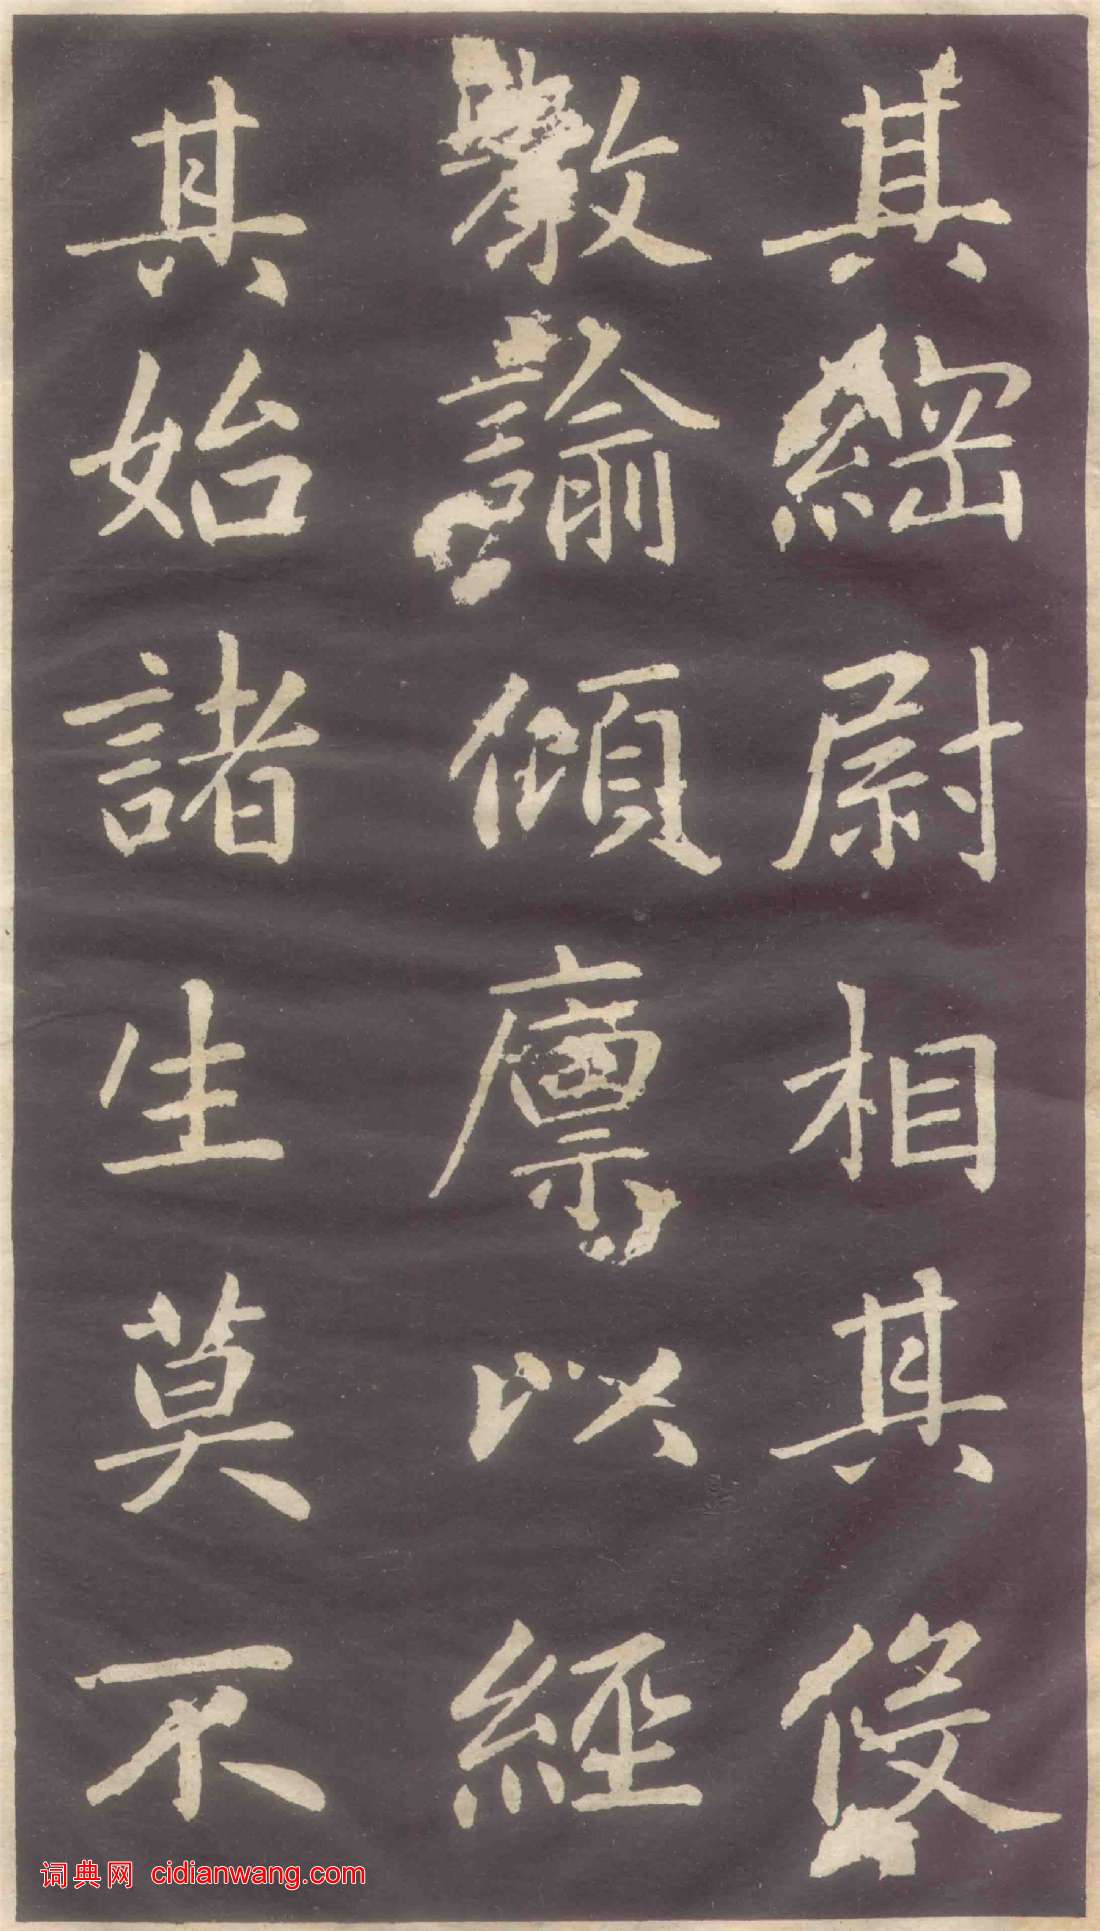 其綱尉相其伇
斆諭傾廩以經
其始諸生莫不
词典网 cidianwang.com